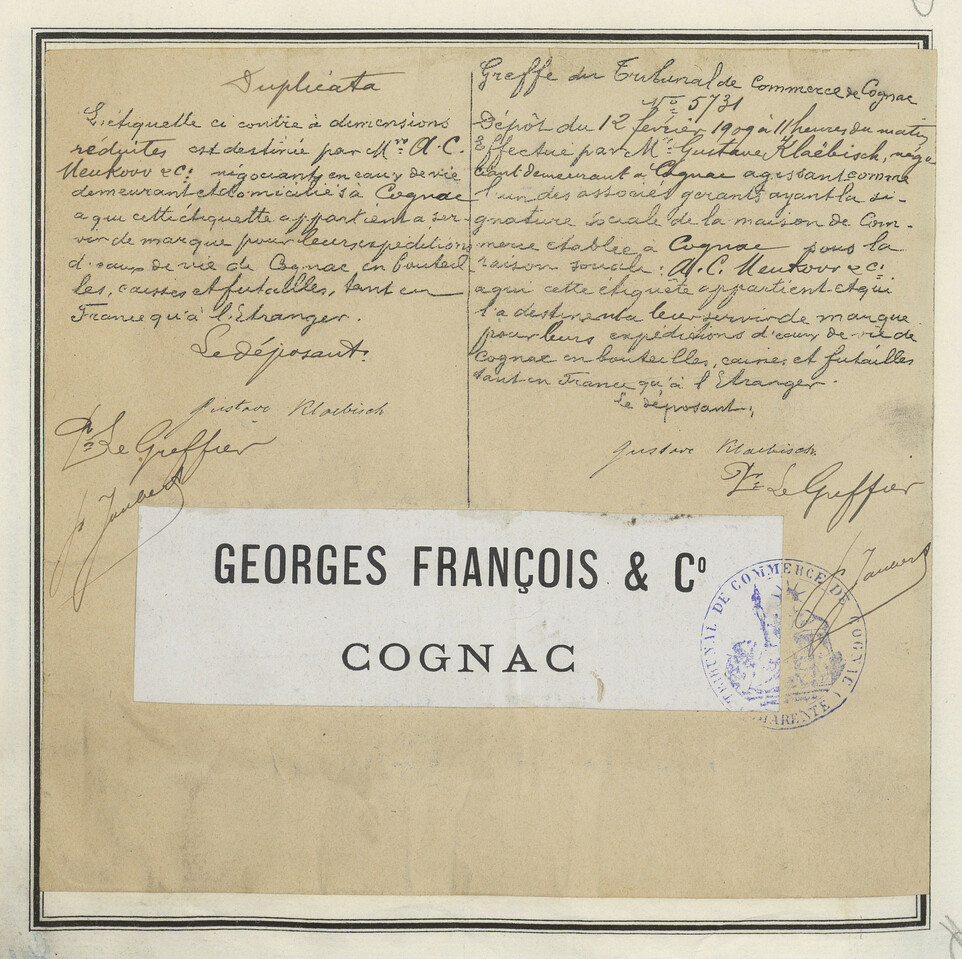 Duplicata
L'étiquette ci contre à dimensions
réduites est destinée par Mrs A. C.
Meukow & Cie négociants en eaux de vie
demeurant et domiciliés à Cognac
a qui cette étiquette appartient a ser-
vir de marque pour leurs expéditions
d'eaux de vie de Cognac en bouteil-
les, caisses et futailles, tant en
France qu'à l'Etranger.
Le déposant.
Gustave Klaebisch
Pr Le Greffier
Jaubert
Greffe du Tribunal de Commerce de Cognac
No 5731
Dépôt du 12 février 1909 à 11 heures du matin
Effectué par Mr Gustave Klaëbisch, négo
ciant demeurant a Cognac agissant comme
l'un des associés gerants ayant la si-
gnature sociale de la maison de Com-
merce etablie à Cognac sous la
raison sociale: A. C. Meukow & Cie
a qui cette étiquete appartient et qui
l'a destinent a leur servir de marque
pour leurs expéditions d'eaux de vie de
Cognac en bouteilles, caisses et futailles
tant en France qu'à l'Etranger.
Le déposant,
Gustave Klaebisch
Pr Le Greffier
Jaubert
GEORGES FRANÇOIS & Co
COGNAC
TRIBUNAL DE COMMERCE DE COGNAC
(CHARENTE)